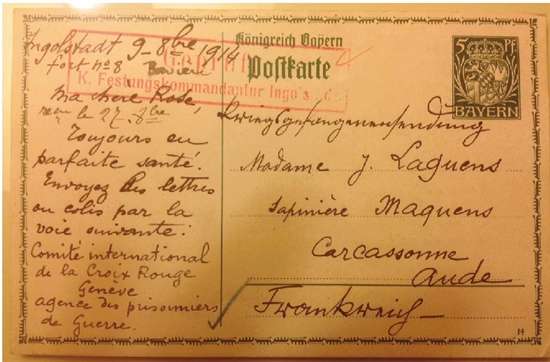 Ingolstadt 9-8bre 1914
fort no 8 Bavière
Ma chère Rose,
reçu le 27. 8bre
Toujours en
parfaite santé.
Envoyez les lettres
ou colis par la
voie suivante:
Comité international
de la Croix Rouge
Genève
agence des prisonniers
de Guerre.
Königreich Bayern
Postkarte
Geprüft
K. Festungskommandantur Ingo
5 Pf
BAYERN
Kriegsgefangenensendung
Madame J. Laguens
Sapinière Maquens
Carcassonne
Aude
Frankreich
14